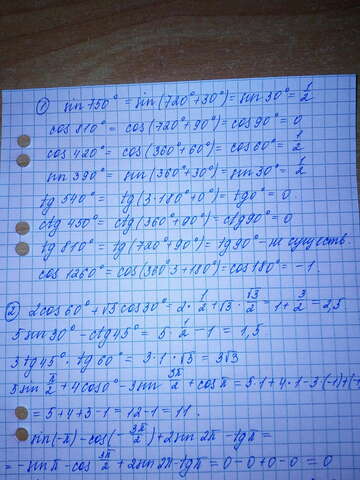 ① sin 750° = sin(720°+30°) = sin 30° = 1/2
cos 810° = cos(720°+90°) = cos 90° = 0
cos 420° = cos(360°+60°) = cos 60° = 1/2
sin 390° = sin(360°+30°) = sin 30° = 1/2
tg 540° = tg(3·180°+0°) = tg 0° = 0.
ctg 450° = ctg(360°+90°) = ctg 90° = 0
tg 810° = tg(720°+90°) = tg 90° - не существ.
cos 1260° = cos(360°·3+180°) = cos 180° = -1.
② 2cos 60° + √3 cos 30° = 2·1/2 + √3·√3/2 = 1 + 3/2 = 2,5
5sin 30° - ctg 45° = 5·1/2 - 1 = 1,5
3tg 45°·tg 60° = 3·1·√3 = 3√3
5sin π/2 + 4cos 0° - 3sin 3π/2 + cos π = 5·1+4·1-3·(-1)+(-1
= 5+4+3-1 = 12-1 = 11.
sin(-π) - cos(-3π/2) + 2sin 2π - tg π =
= -sin π - cos 3π/2 + 2sin 2π - tg π = 0-0+0-0 = 0